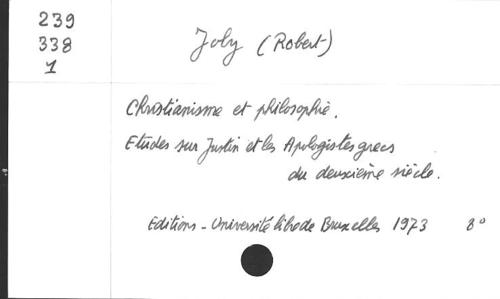 239
338
1
Joly (Robert)
Christianisme et philosophie.
Etudes sur Justin et les Apologistes grecs
du deuxième siècle.
Editions - Université libre de Bruxelles 1973 8°